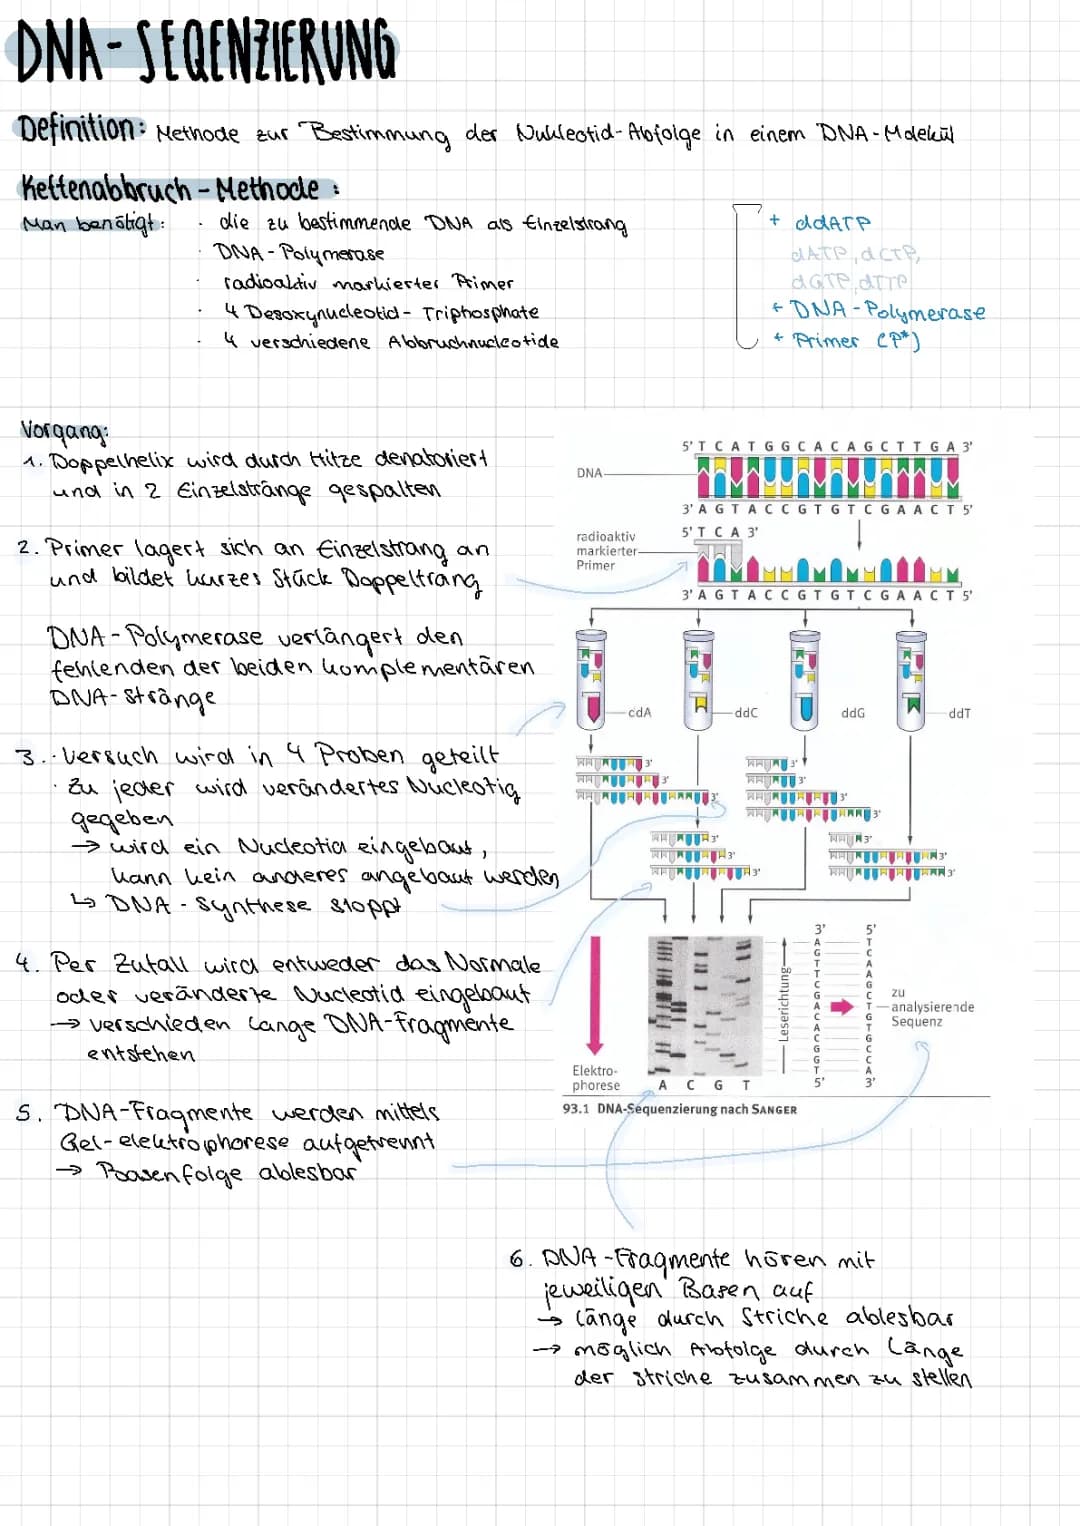 DNA-SEQENZIERUNG
Definition: Methode zur Bestimmung der Nukleotid-Abfolge in einem DNA-Molekül
Kettenabbruch-Methode:
Man benötigt: · die zu bestimmende DNA als Einzelstrang
· DNA-Polymerase
· radioaktiv markierter Primer
· 4 Desoxynucleotid-Triphosphate
· 4 verschiedene Abbruchnucleotide
+ ddATP
dATP, dCTP,
dGTP, dTTP
+ DNA-Polymerase
+ Primer (P*)
Vorgang:
1. Doppelhelix wird durch Hitze denaturiert
und in 2 Einzelstränge gespalten
2. Primer lagert sich an Einzelstrang an
und bildet kurzes Stück Doppeltrang
DNA-Polymerase verlängert den
fehlenden der beiden komplementären
DNA-Stränge
3. · Versuch wird in 4 Proben geteilt
· Zu jeder wird verändertes Nucleotig
gegeben
→ wird ein Nucleotid eingebaut,
kann kein anderes angebaut werden
↳ DNA-Synthese stoppt
4. Per Zufall wird entweder das Normale
oder veränderte Nucleotid eingebaut
→ verschieden lange DNA-Fragmente
entstehen
5. DNA-Fragmente werden mittels
Gel-elektrophorese aufgetrennt
→ Basenfolge ablesbar
5' T C A T G G C A C A G C T T G A 3'
DNA
3' A G T A C C G T G T C G A A C T 5'
5' T C A 3'
radioaktiv
markierter
Primer
3' A G T A C C G T G T C G A A C T 5'
cdA
ddC
ddG
ddT
3'
3'
3'
3'
3'
3'
3'
3'
3'
3'
3'
3'
3'
Elektro-
phorese
A C G T
Leserichtung
3' A G T T C G A C A C G G T 5'
5' T C A A G C T G T G C C A 3'
zu
analysierende
Sequenz
93.1 DNA-Sequenzierung nach SANGER
6. DNA-Fragmente hören mit
jeweiligen Basen auf
→ Länge durch Striche ablesbar
→ möglich Abfolge durch Länge
der Striche zusammen zu stellen